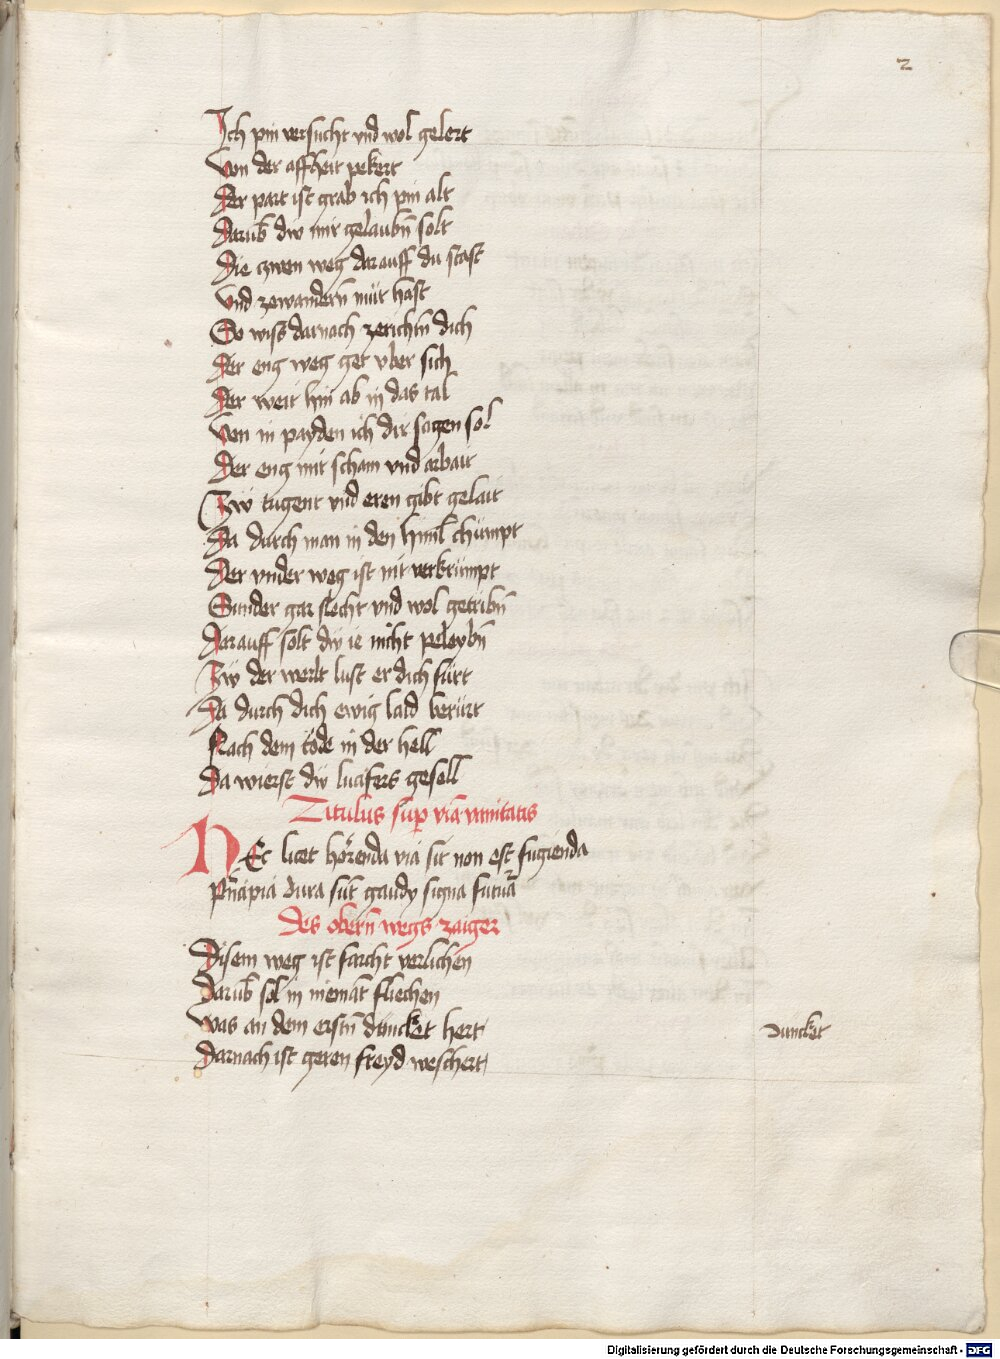 2
Ich pin versucht vnd wol gelert
Von der affheit pekert
Der part ist grab ich pin alt
Darūb dw mir gelaubn̄ solt
Die czwen weg darauff du stast
Vnd zewandern̄ mūt hast
So wiss darnach zerichtn̄ dich
Der eng weg get vber sich
Der weit hin ab in das tal
Von in payden ich dir sagen sol
Der eng mit scham vnd arbait
Zw tugent vnd eren gibt gelait
Da durch man in den himl̄ chümpt
Der vnder weg ist nit verkrümpt
Sunder gar slecht vnd wol getribn̄
Darauff solt dw ie nicht peleybn̄
Zw der werlt lust er dich fürt
Da durch dich ewig laid berürt
Nach dem tode in der hell
Da wierst dw lucifers gesell
Titulus sup viā vnitatis
Hec licet horrenda via sit non est fugienda
Pn̄cipia dura sūt gaudy signa futura
Des obern̄ wegs zaiger
Disem weg ist farcht verlichen
Darūb sol in niemāt fliechen
Was an dem erstn̄ duncket hert
Darnach ist geren freyd weschert
Duncket
Digitalisierung gefördert durch die Deutsche Forschungsgemeinschaft - DFG